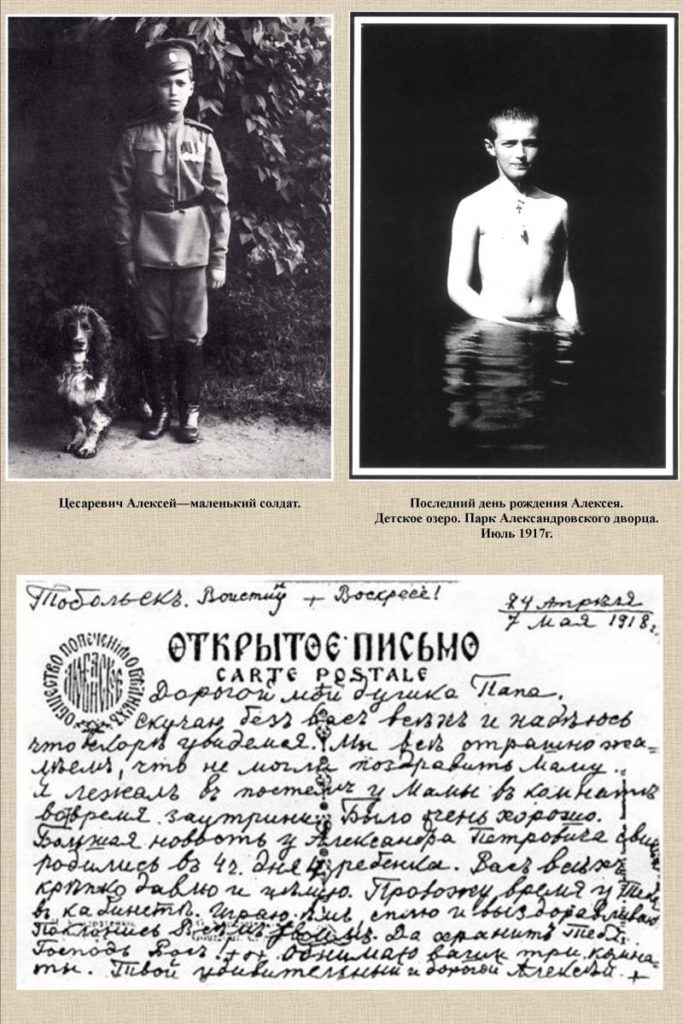 Цесаревич Алексей—маленький солдат.
Последний день рождения Алексея.
Детское озеро. Парк Александровского дворца.
Июль 1917г.
Тобольскъ. Воистину + Воскресе!
24 Апрѣля
7 Мая 1918г.
ОТКРЫТОЕ ПИСЬМО
CARTE POSTALE
ОБЩЕСТВО ПОПЕЧЕНІЯ О БѢДНЫХЪ
Дорогой мой душка Папа.
Скучаю безъ васъ всѣхъ и надѣюсь
что вскорѣ увидемся. Мы всѣ страшно жа-
лѣемъ, что не могли поздравить Маму.
Я лежалъ въ постели у Мамы въ комнатѣ
во время заутрини. Было очень хорошо.
Большая новость у Александра Петровича
родились въ 4 ч. дня ребенка. Васъ всѣхъ
крѣпко давлю и цѣлую. Провожу время у Тебя
въ кабинетѣ. Играю, ѣмъ, сплю и выздоравливаю
Поклонись Всѣмъ Да хранитъ Тебя
Господь Богъ! ++ Обнимаю три комна-
ты. Твой удивительный и дорогой Алексѣй +